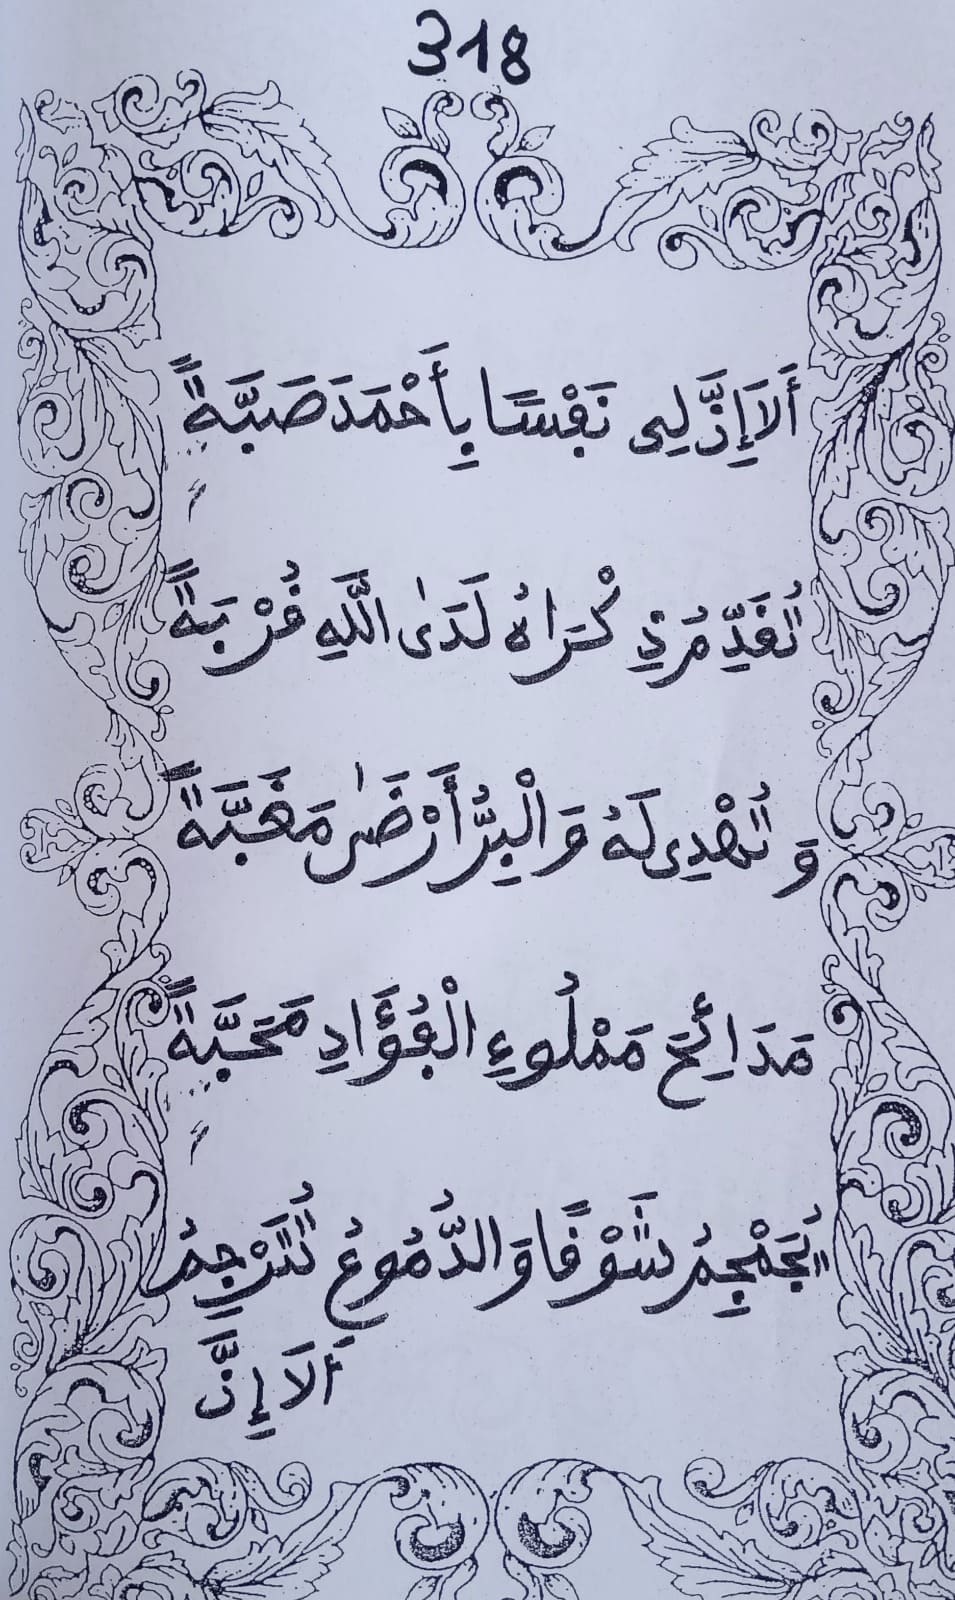 318
أَلَا إِنَّ لِى نَفْسًا بِأَحْمَدَ صَبَّةً
تُقَدِّمُ ذِكْرَاهُ لَدَى اللَّهِ قُرْبَةً
وَ تُهْدِى لَهُ وَ الْبِرُّ أَرْضَى مَغَبَّةً
مَدَائِحَ مَمْلُوءِ الْفُؤَادِ مَحَبَّةً
يُجَمْجِمُ شَوْقًا وَ الدُّمُوعُ تُتَرْجِمُ
أَلَا إِنَّ